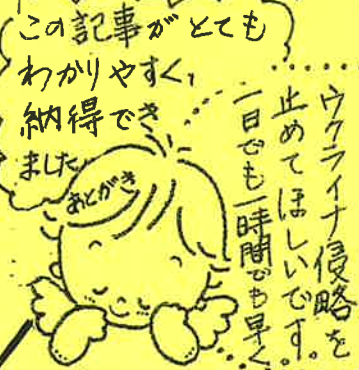 この記事がとても
わかりやすく、
納得でき
ました
あとがき
ウクライナ侵略を
止めてほしいです。
一日でも一時間でも早く